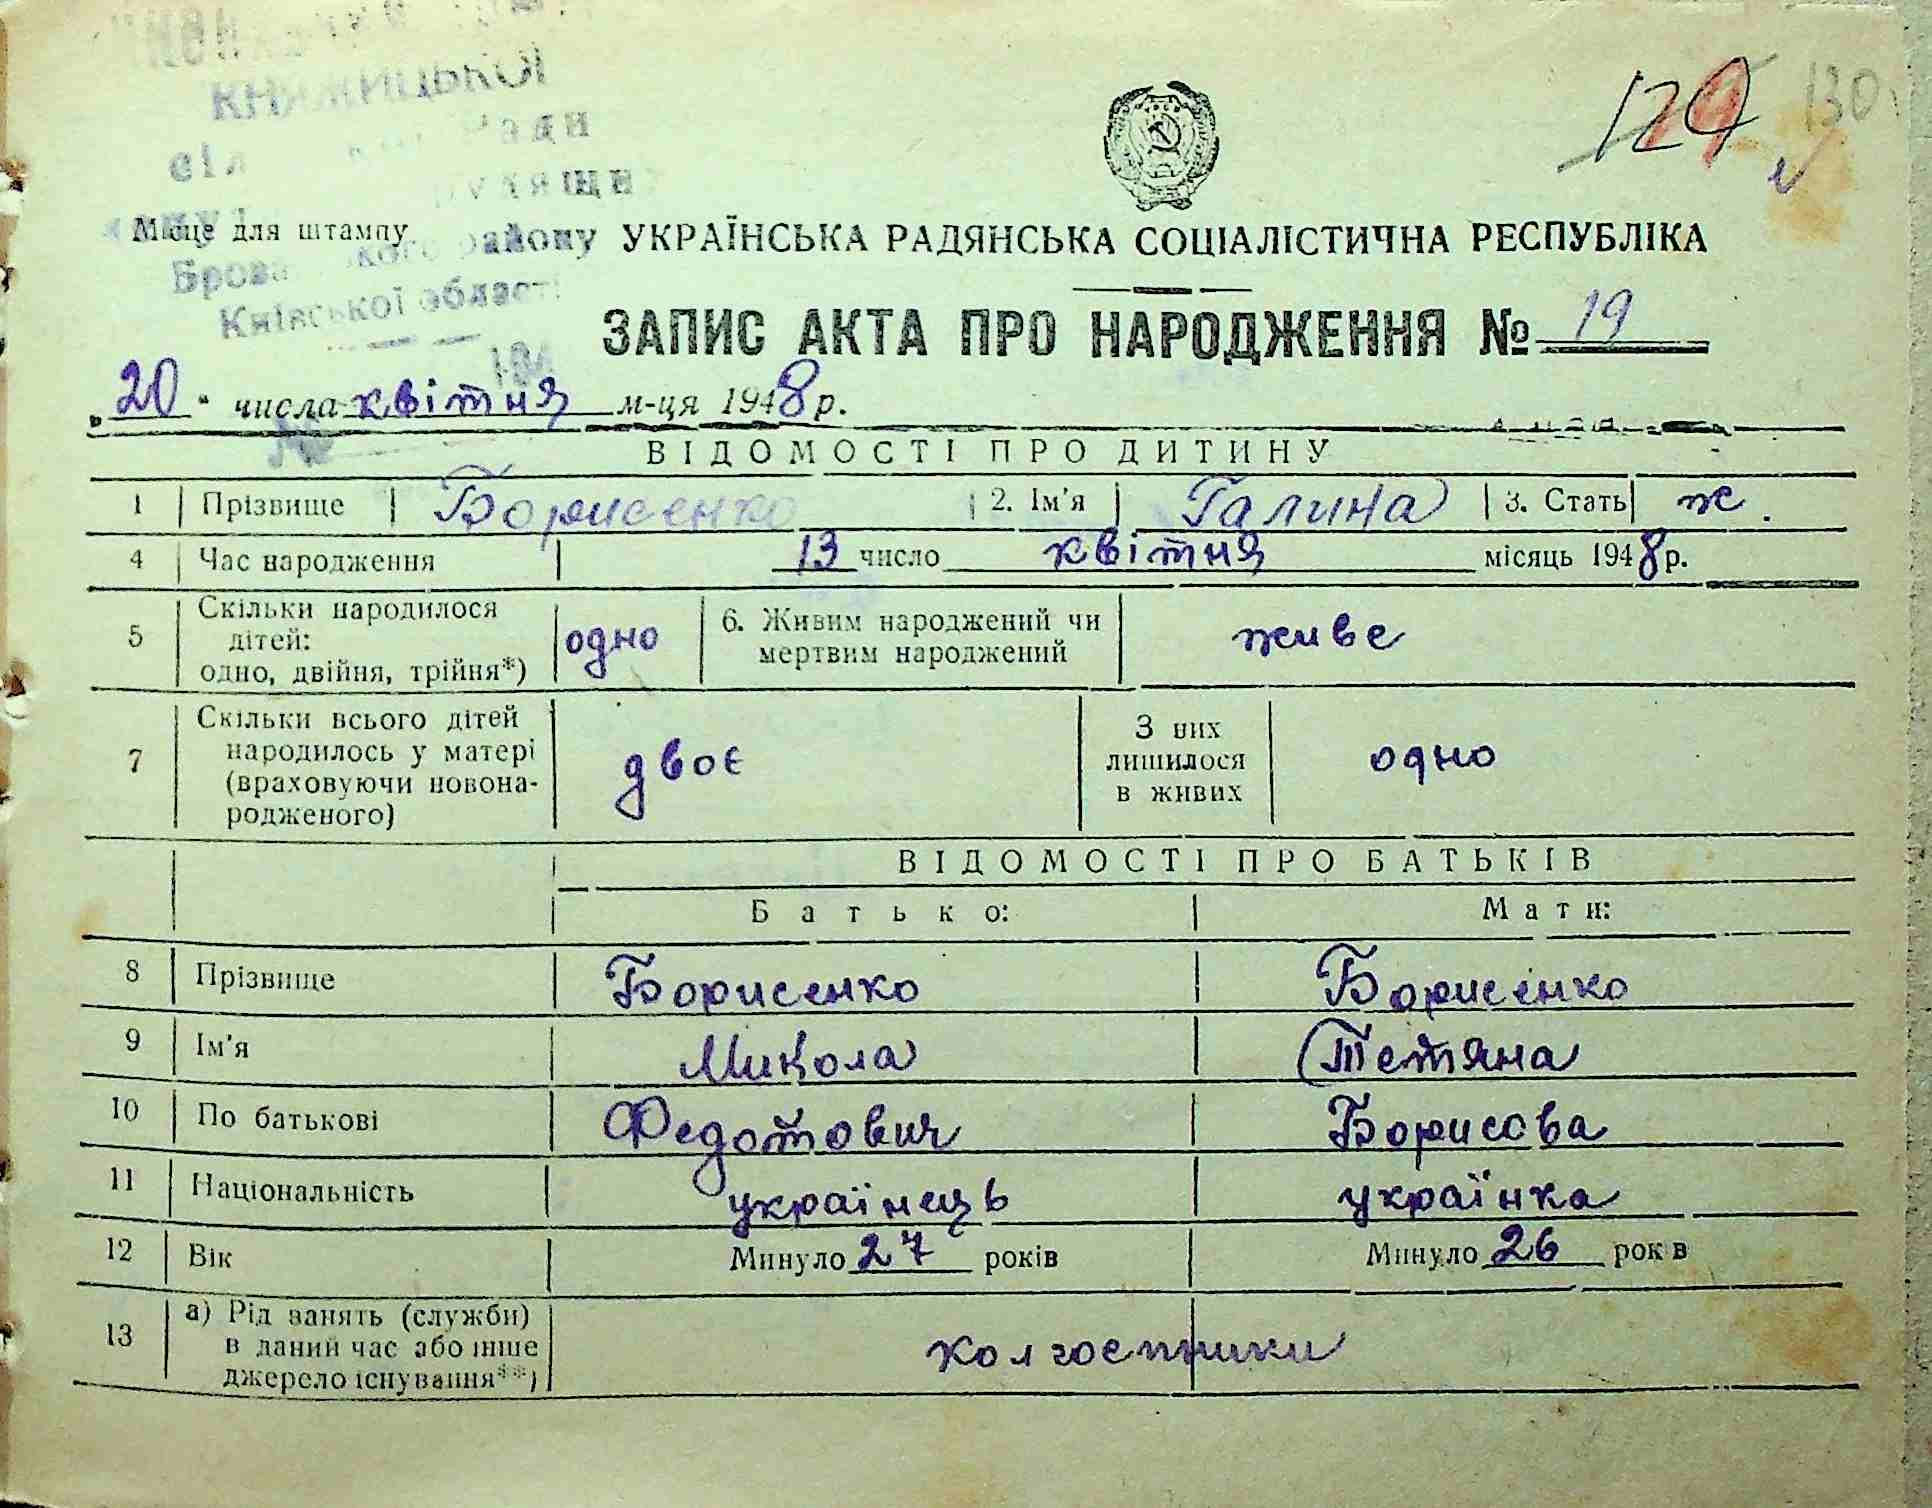 КНЯЖИЦЬКОЇ
Ради
району
Київської області
194
№
129 130
Місце для штампу
УКРАЇНСЬКА РАДЯНСЬКА СОЦІАЛІСТИЧНА РЕСПУБЛІКА
ЗАПИС АКТА ПРО НАРОДЖЕННЯ № 19
„20“ числа квітня м-ця 1948 р.
ВІДОМОСТІ ПРО ДИТИНУ
1 Прізвище Борисенко 2. Ім'я Галина 3. Стать ж.
4 Час народження 13 число квітня місяць 1948 р.
5 Скільки народилося дітей: одно, двійня, трійня*) одно 6. Живим народжений чи мертвим народжений живе
7 Скільки всього дітей народилось у матері (враховуючи новонародженого) двоє З них лишилося в живих одно
ВІДОМОСТІ ПРО БАТЬКІВ
Батько: Мати:
8 Прізвище Борисенко Борисенко
9 Ім'я Микола Тетяна
10 По батькові Федотович Борисова
11 Національність українець українка
12 Вік Минуло 27 років Минуло 26 років
13 а) Рід занять (служби) в даний час або інше джерело існування**) колгоспники